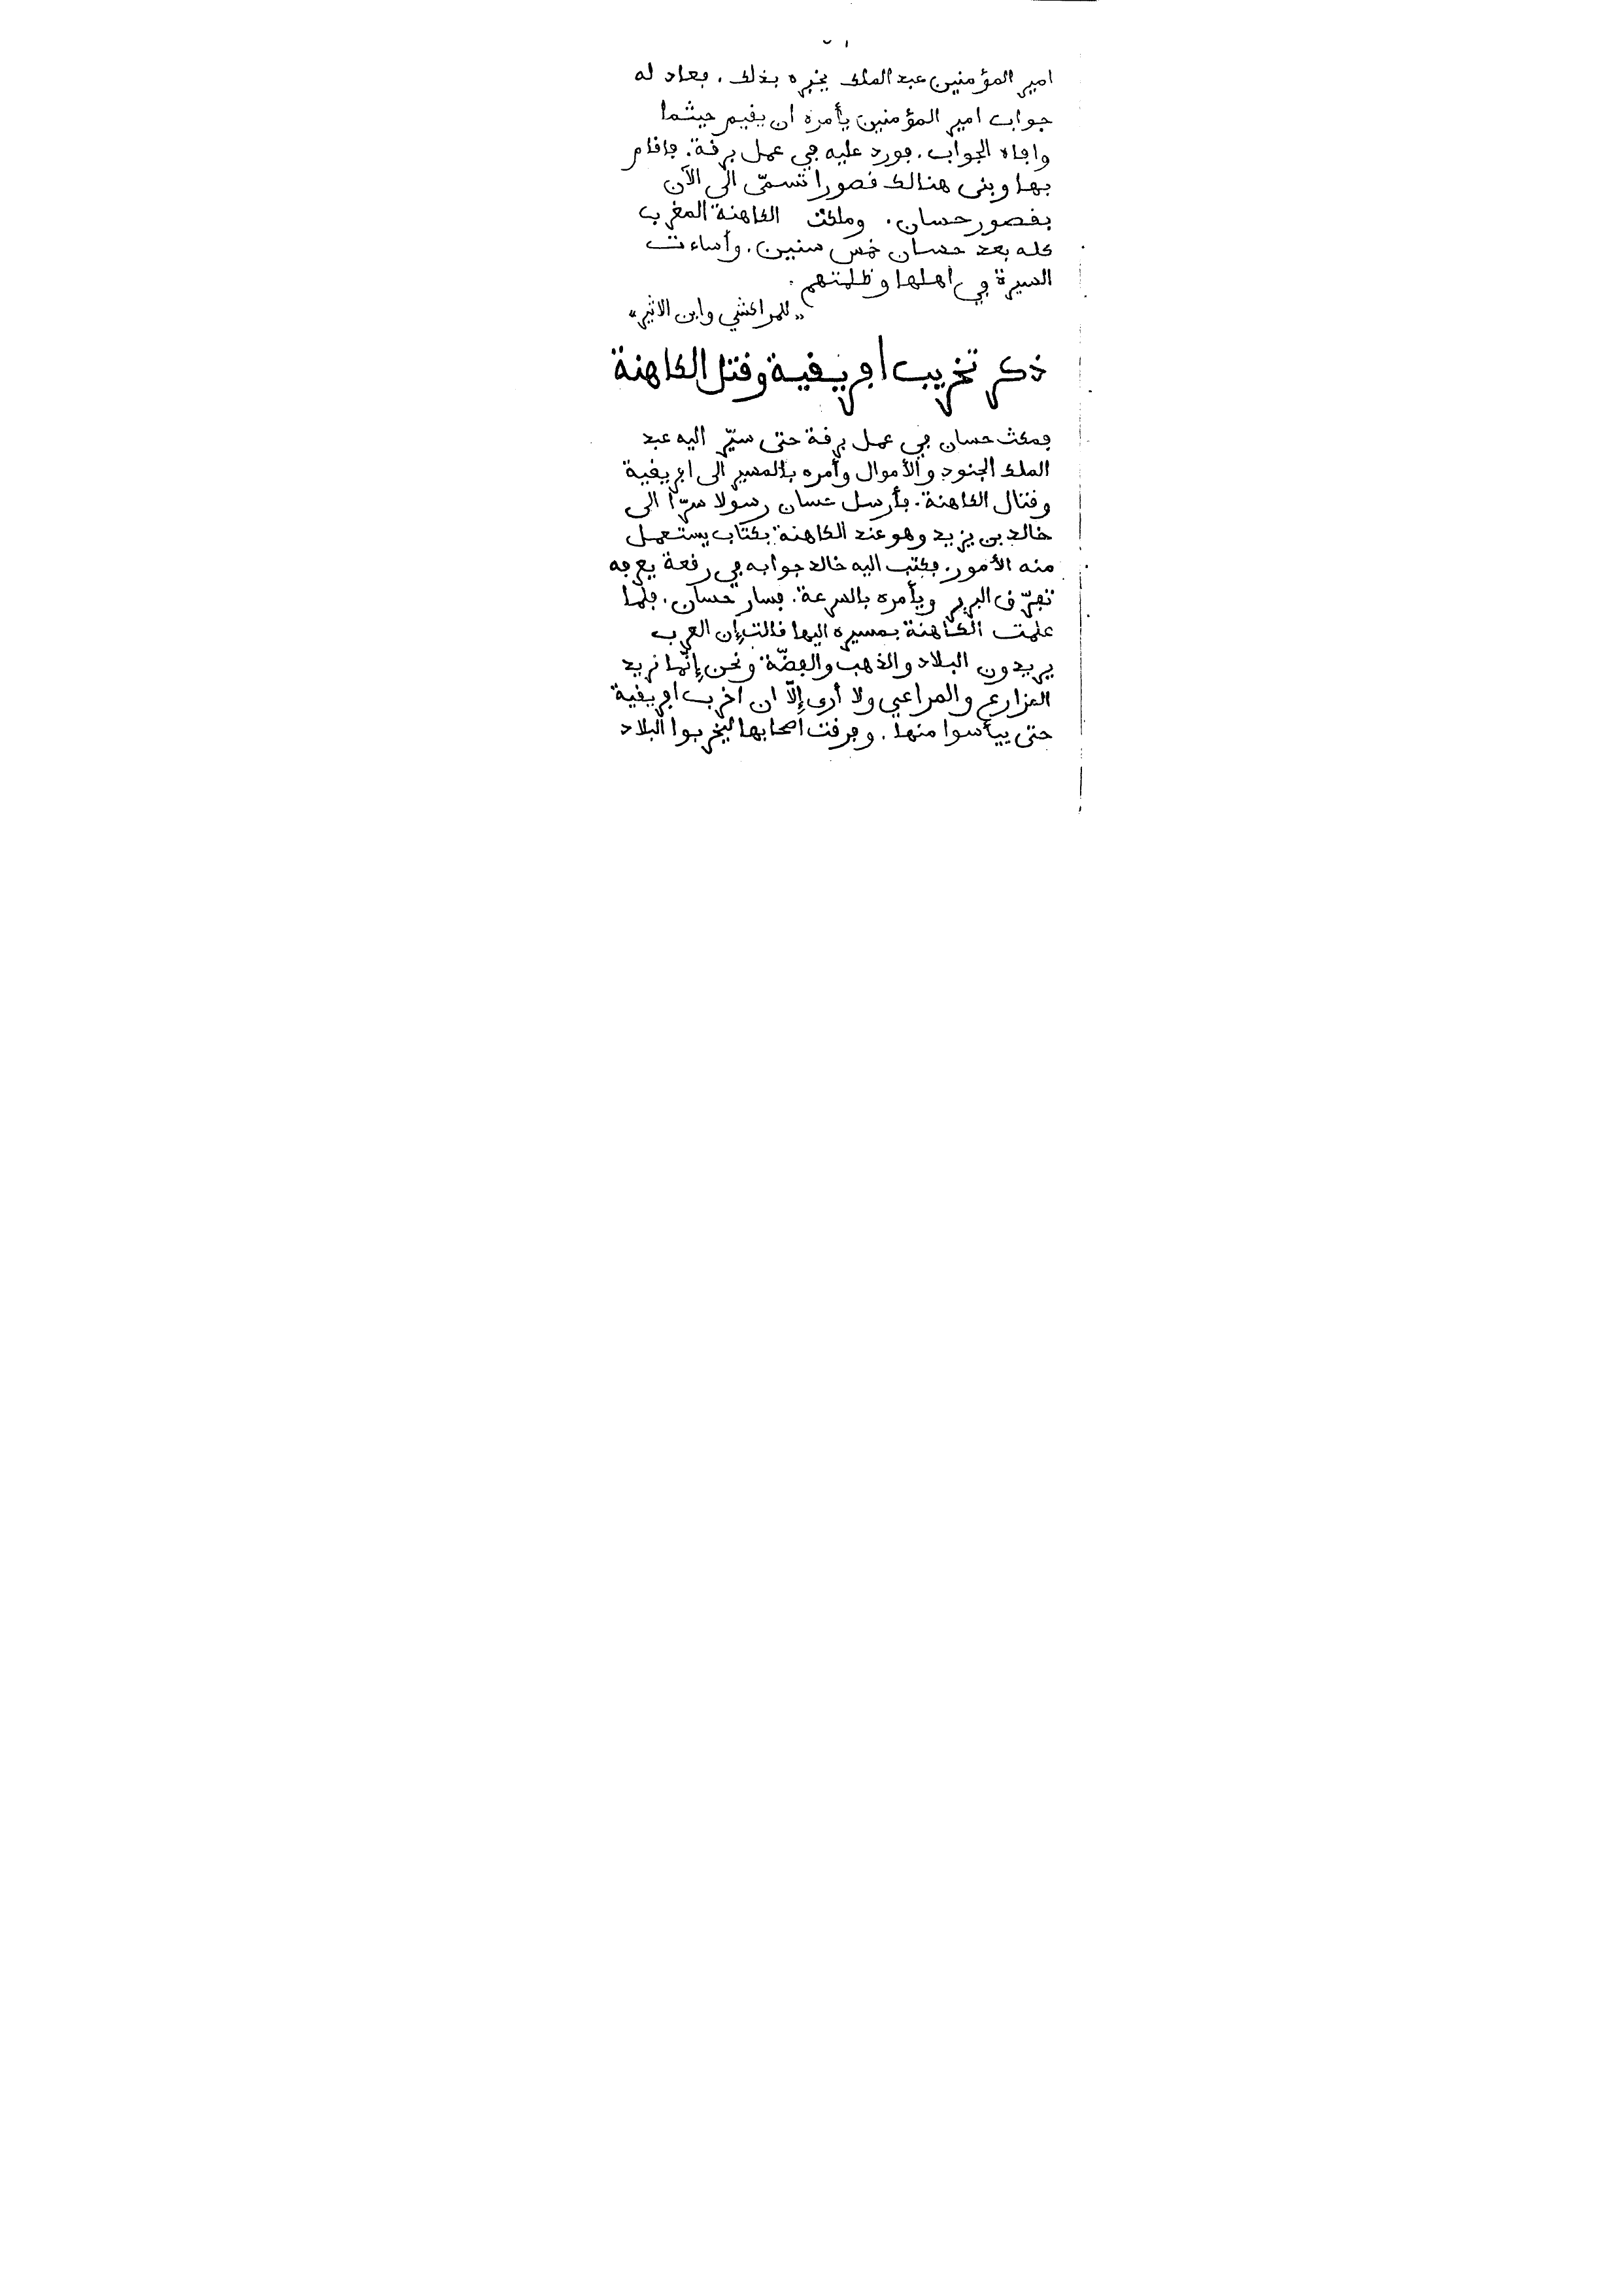 امير المؤمنين عبد الملك يخبره بذلك. فعاد له
جواب امير المؤمنين يأمره ان يقيم حيثما
وافاه الجواب. فورد عليه في عمل برقة. فاقام
بها وبنى هنالك قصورا تسمّى الى الآن
بقصور حسان. وملكت الكاهنة المغرب
كله بعد حسان خمس سنين. وأساءت
السيرة في اهلها وظلمتهم.
"للمراكشي وابن الاثير"
ذكر تخريب افريقية وقتل الكاهنة
فمكث حسان في عمل برقة حتى سيّر اليه عبد
الملك الجنود والأموال وأمره بالمسير الى افريقية
وقتال الكاهنة. فأرسل حسان رسولا سرّا الى
خالد بن يزيد وهو عند الكاهنة بكتاب يستعمل
منه الأمور. فكتب اليه خالد جوابه في رقعة يعرفه
تفرّق البربر ويأمره بالسرعة. فسار حسان. فلما
علمت الكاهنة بمسيره اليها قالت إن العرب
يريدون البلاد والذهب والفضّة ونحن إنّما نريد
المزارع والمراعي ولا أرى إلاّ ان اخرب افريقية
حتى ييأسوا منها. وفرقت اصحابها ليخربوا البلاد